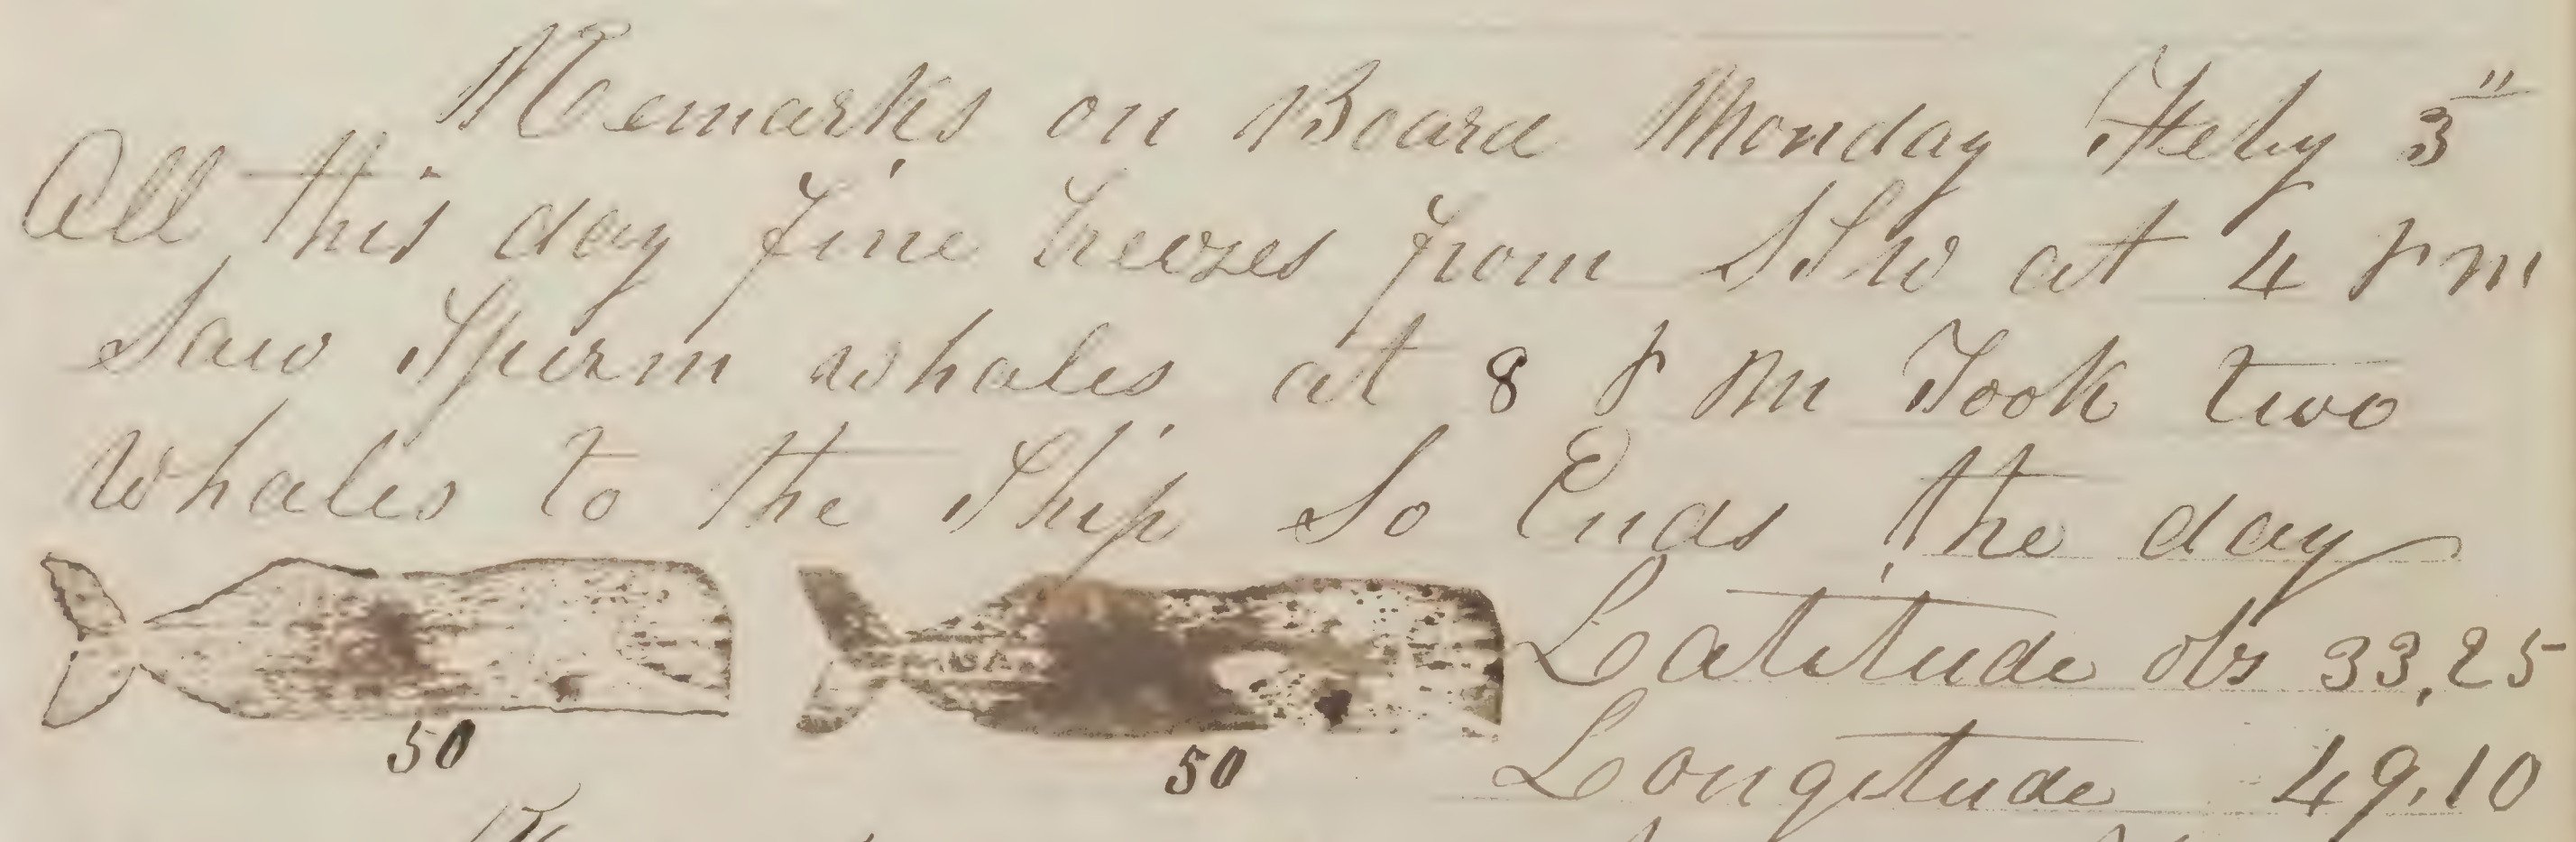 Remarks on Board Monday Feby 3"
All this day fine breezes from SSW at 4 P M
Saw Sperm whales at 8 P M Took two
Whales to the Ship So Ends the day
Latitude obs 33,25
50 50 Longitude 49,10